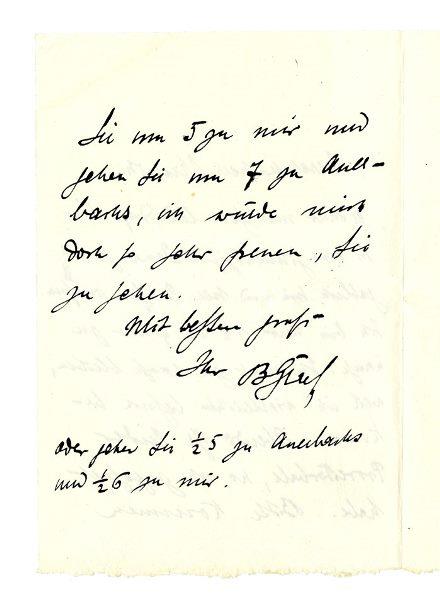 Sie um 5 zu mir und
gehen Sie um 7 zu Auer-
bachs, ich würde mich
doch so sehr freuen, Sie
zu sehen.
Mit bestem Gruß
Ihr
oder gehen Sie ½5 zu Auerbachs
und ½6 zu mir.